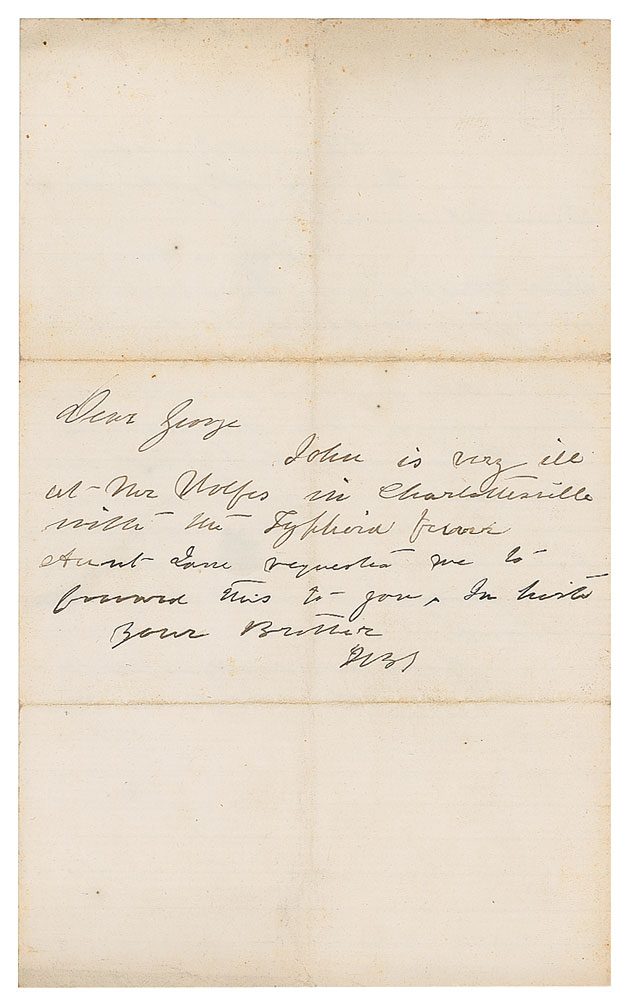 Dear George
John is very ill
at Mr Wolfes in Charlottesville
with the Typhoid fever
Aunt Jane requested me to
forward this to you, In haste
Your Brother